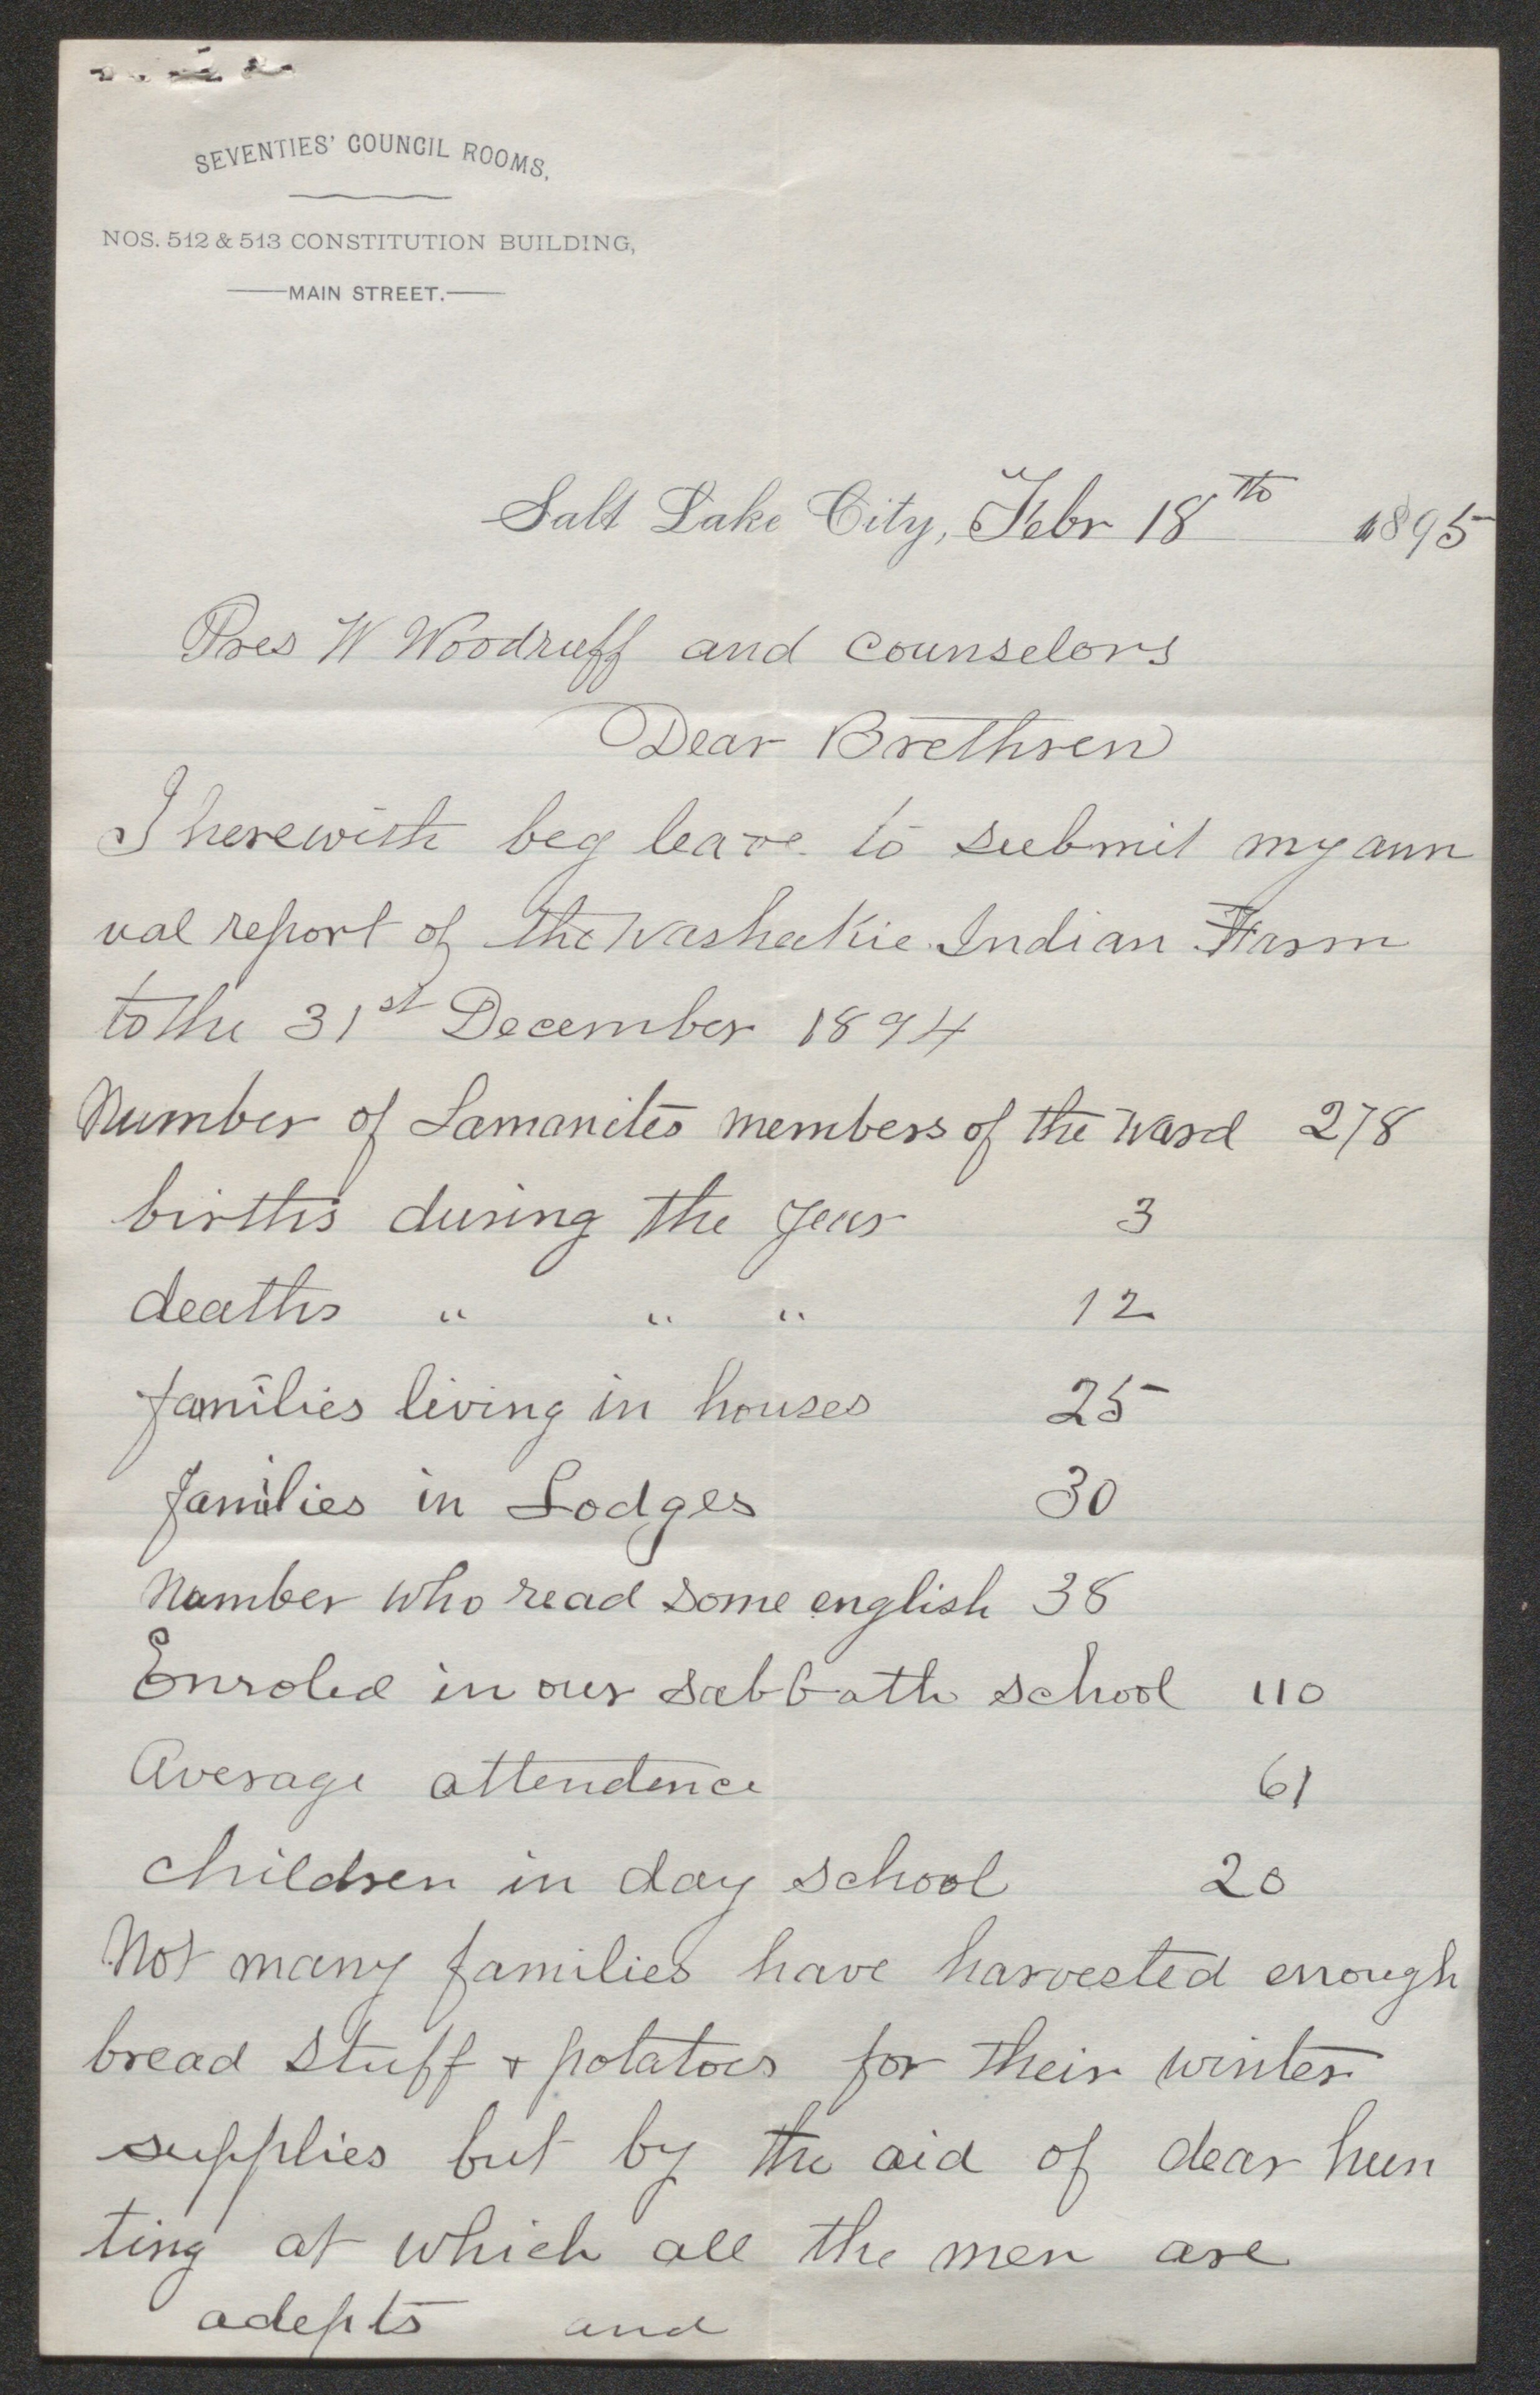 SEVENTIES' COUNCIL ROOMS,
NOS. 512 & 513 CONSTITUTION BUILDING,
MAIN STREET.
Salt Lake City, Febr 18th 1895
Pres W Woodruff and counselors
Dear Brethren
I herewith beg leave to submit my ann
ual report of the Washakie Indian Farm
to the 31st December 1894
Number of Lamanites members of the ward 278
births during the year 3
deaths " " " 12
families living in houses 25
families in Lodges 30
Number who read some english 38
Enroled in our sabbath school 110
Average attendence 61
children in day school 20
Not many families have harvested enough
bread stuff & potatoes for their winter
supplies but by the aid of dear hun
ting at which all the men are
adepts and